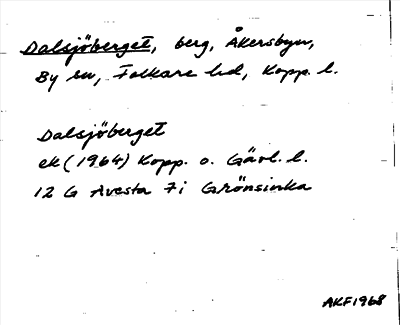 Dalsjöberget, berg, Åkersbyn,
By sn, Folkare hd, Kopp. l.
Dalsjöberget
ek (1964) Kopp. o. Gävl. l.
12 G Avesta 7i Grönsinka
AKF1968